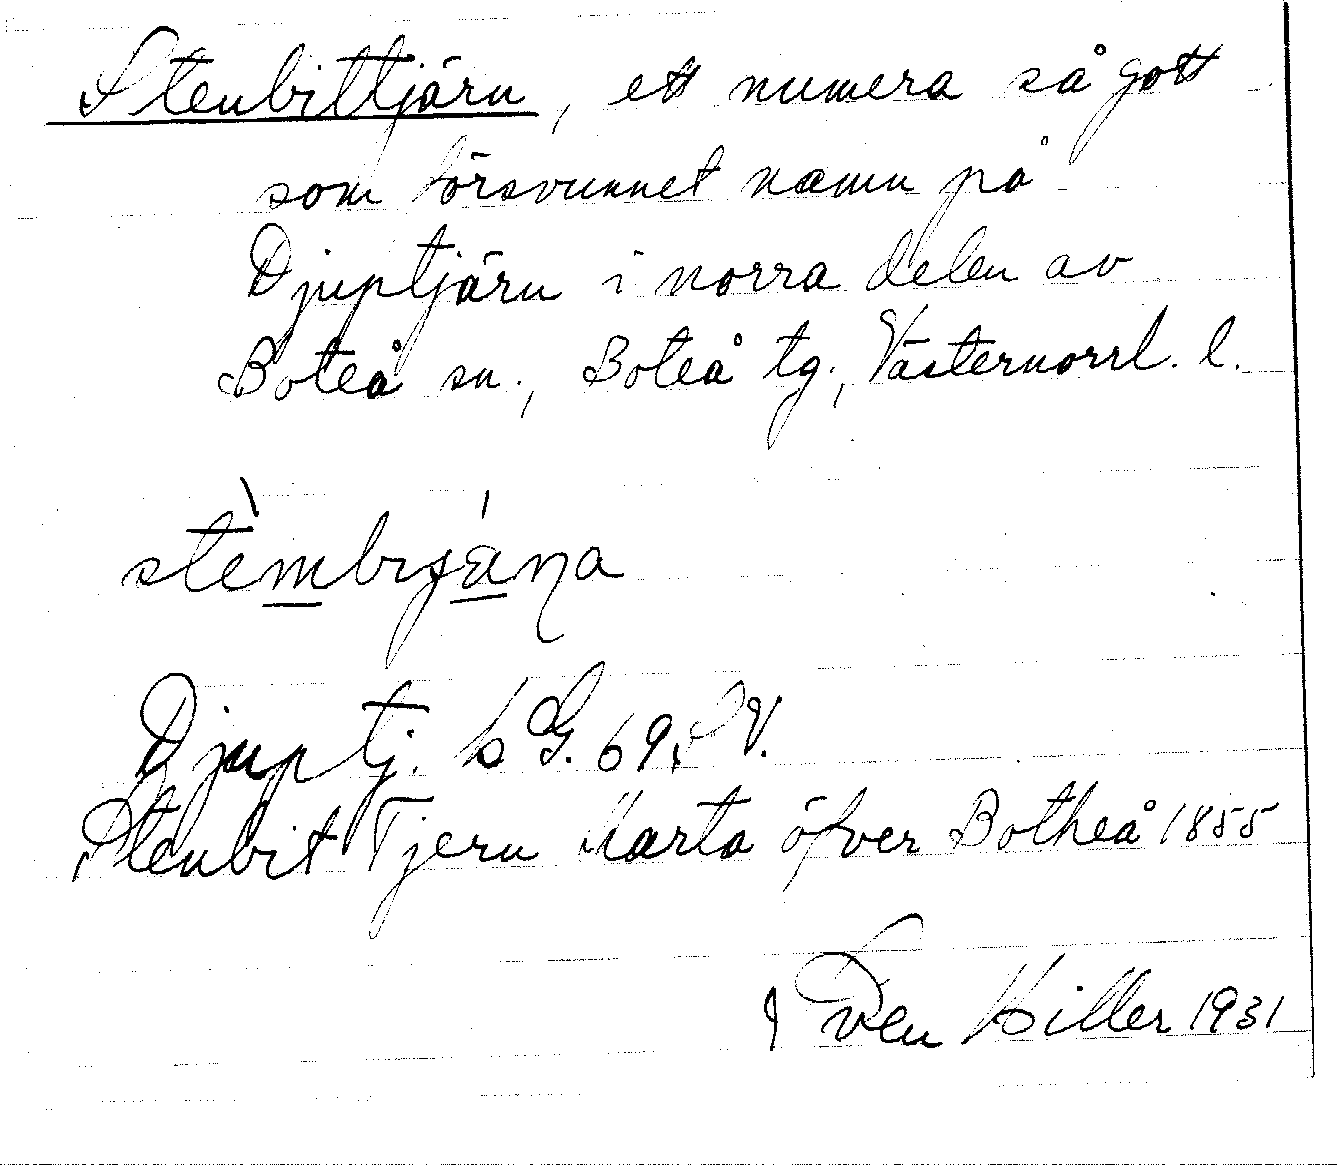 Stenbittjärn, ett numera så gott
som försvunnet namn på
Djuptjärn i norra delen av
Boteå sn., Boteå tg., Västernorrl. l.
stèmbıjä́ɳa
Djuptj. b G. 69, S V.
Stenbit Tjern Karta öfver Botheå 1855
Sven Hiller 1931